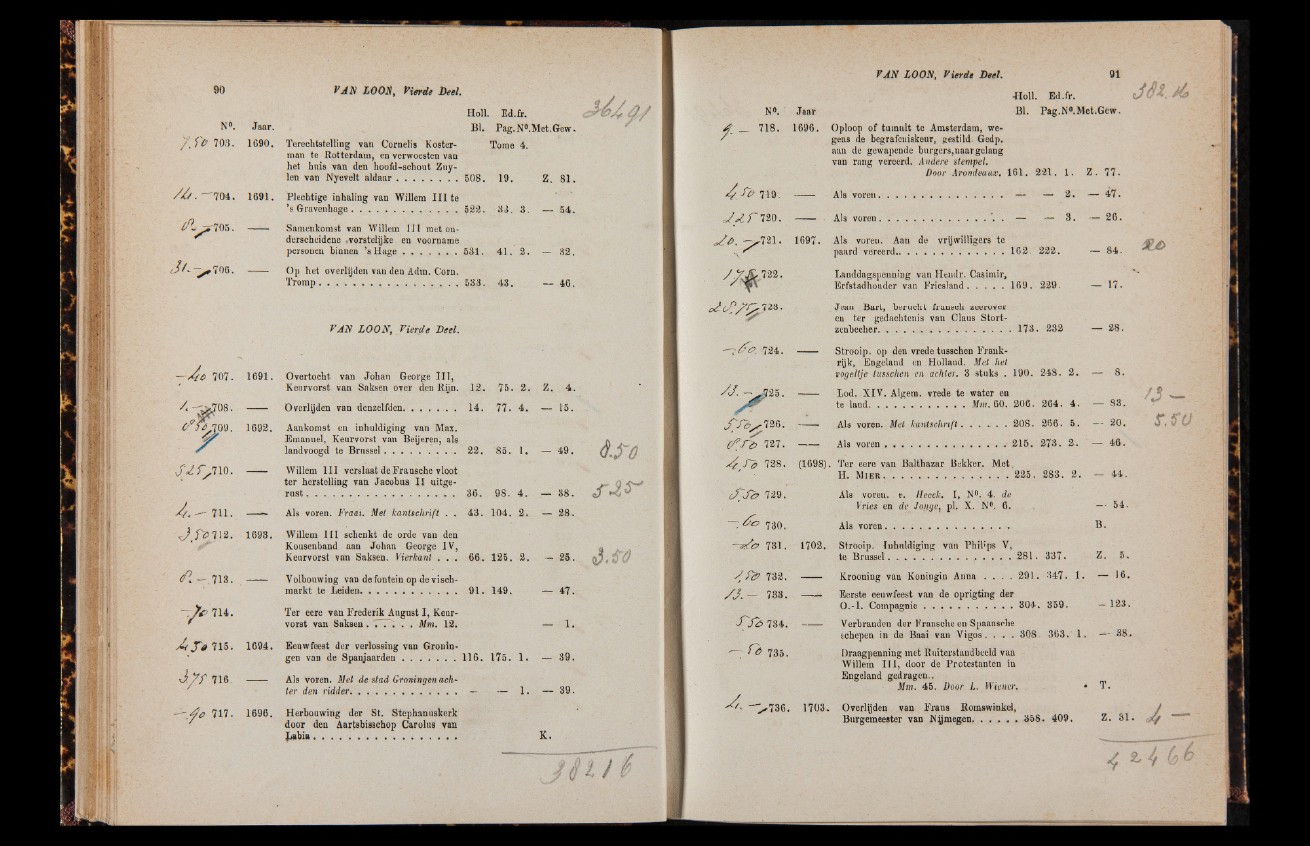 90 VAN LOON, Vierde Deel.
36491
Holl. Ed.fr.
N⁰. Jaar. Bl. Pag.N⁰.Met.Gew.
7.50 703. 1690. Terechtstelling van Cornelis Koster- Tome 4.
man te Rotterdam, en verwoesten van
het huis van den hoofd-schout Zuy-
len van Nyevelt aldaar . . . . . . . . 508. 19. Z. 81.
14.— 704. 1691. Plechtige inhaling van Willem III te
's Gravenhage . . . . . . . . . . . . . 522. 33. 3. — 54.
8.— 705. —— Samenkomst van Willem III met on-
derscheidene vorstelijke en voorname
personen binnen 's Hage . . . . . . . 531. 41. 2. — 32.
31.— 706. —— Op het overlijden van den Adm. Corn.
Tromp . . . . . . . . . . . . . . . . . 533. 43. — 46.
VAN LOON, Vierde Deel.
—40 707. 1691. Overtocht van Johan George III,
Keurvorst van Saksen over den Rijn. 12. 75. 2. Z. 4.
1.— 708. —— Overlijden van denzelfden. . . . . . . 14. 77. 4. — 15.
8.50 709. 1692. Aankomst en inhuldiging van Max.
Emanuel, Keurvorst van Beijeren, als
landvoogd te Brussel . . . . . . . . . 22. 85. 1. — 49. 8.50
5.25 710. —— Willem III verslaat de Fransche vloot
ter herstelling van Jacobus II uitge-
rust . . . . . . . . . . . . . . . . . . 36. 98. 4. — 38. 5.25
4.— 711. —— Als voren. Fraai. Met kantschrift . . 43. 104. 2. — 28.
3.50 712. 1693. Willem III schenkt de orde van den
Kousenband aan Johan George IV,
Keurvorst van Saksen. Vierkant . . . 66. 125. 2. — 25. 3.50
8.— 713. —— Volbouwing van de fontein op de visch-
markt te Leiden. . . . . . . . . . . . 91. 149. — 47.
—70 714. Ter eere van Frederik August I, Keur-
vorst van Saksen . . . . . . Mm. 12. — 1.
4.50 715. 1694. Eeuwfeest der verlossing van Gronin-
gen van de Spanjaarden . . . . . . . 116. 175. 1. — 39.
3.75 716. —— Als voren. Met de stad Groningen ach-
ter den ridder. . . . . . . . . . . . . — — 1. — 39.
—90 717. 1696. Herbouwing der St. Stephanuskerk
door den Aartsbisschop Carolus van
Labia . . . . . . . . . . . . . . . . . K.
38216
VAN LOON, Vierde Deel. 91
382.16
Holl. Ed.fr.
N⁰. Jaar Bl. Pag.N⁰.Met.Gew.
9.— 718. 1696. Oploop of tumult te Amsterdam, we-
gens de begrafeniskeur, gestild. Gedp.
aan de gewapende burgers, naar gelang
van rang vereerd. Andere stempel.
Door Arondeaux. 161. 221. 1. Z. 77.
4.50 719. —— Als voren . . . . . . . . . . . . . . . — — 2. — 47.
2.25 720. —— Als voren . . . . . . . . . . . . . . . — — 3. — 26.
20.— 721. 1697. Als voren. Aan de vrijwilligers te
paard vereerd . . . . . . . . . . . . . 162. 222. — 84. 20
722. Landdagspenning van Hendr. Casimir,
Erfstadhouder van Friesland . . . . . 169. 229. — 17.
28.75 723. Jean Bart, berucht fransch zeeroover
en ter gedachtenis van Claus Stort-
zenbecher . . . . . . . . . . . . . . . 173. 232 — 28.
—.60 724. —— Strooip. op den vrede tusschen Frank-
rijk, Engeland en Holland. Met het
vogeltje tusschen en achter. 3 stuks . 190. 248. 2. — 8.
13.— 725. —— Lod. XIV. Algem. vrede te water en
te land . . . . . . . . . . . . Mm. 60. 206. 264. 4. — 83. 13 —
5.50 726. —— Als voren. Met kantschrift . . . . . . 208. 266. 5. — 20. 5.50
8.50 727. —— Als voren . . . . . . . . . . . . . . . 215. 273. 2. — 46.
4.50 728. (1698). Ter eere van Balthazar Bekker. Met
H. MIER . . . . . . . . . . . . . . . 225. 283. 2. — 44.
5.50 729. Als voren. v. Heeck. I, N⁰. 4. de
Vries en de Jonge, pl. X. N⁰. 6. — 54.
—.60 730. Als voren . . . . . . . . . . . . . . . B.
—20 731. 1702. Strooip. Inhuldiging van Philips V,
te Brussel . . . . . . . . . . . . . . . 281. 337. Z. 5.
1.50 732. —— Krooning van Koningin Anna . . . . 291. 347. 1. — 16.
13.— 733. —— Eerste eeuwfeest van de oprigting der
O.-I. Compagnie . . . . . . . . . . . 304. 359. — 123.
5.50 734. —— Verbranden der Fransche en Spaansche
schepen in de Baai van Vigos . . . . 308. 363. 1. — 38.
—.50 735. Draagpenning met Ruiterstandbeeld van
Willem III, door de Protestanten in
Engeland gedragen..
Mm. 45. Door L. Wiener. T.
4.— 736. 1703. Overlijden van Frans Romswinkel,
Burgemeester van Nijmegen . . . . . . 358. 409. Z. 31. 4 —
42466